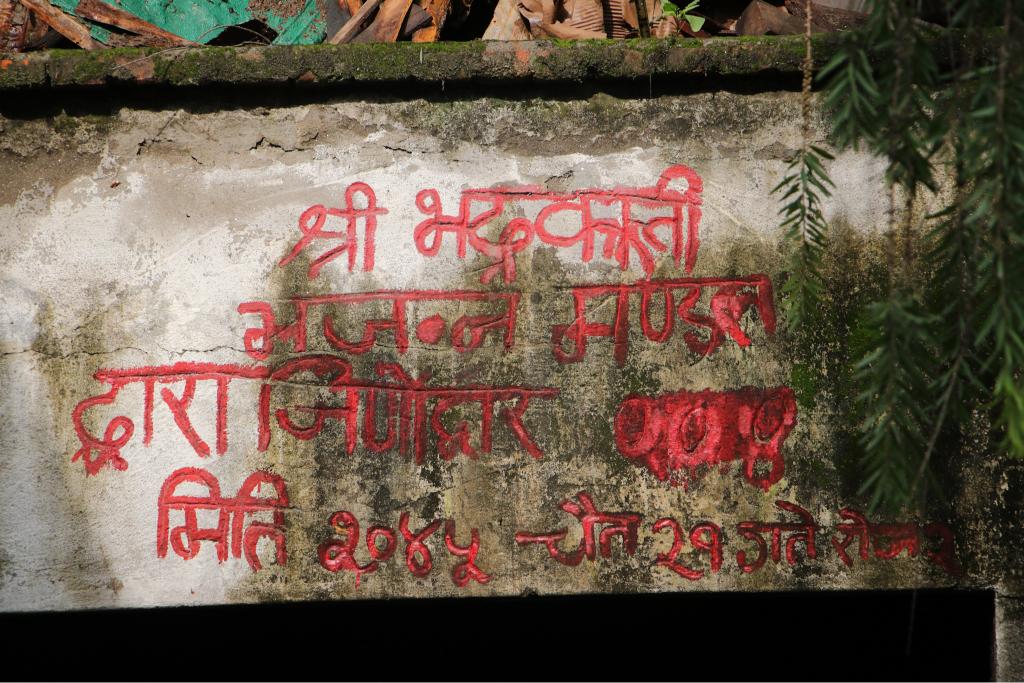 श्री भद्रकाली
भजन मण्डल
द्वारा जिर्णोद्वार
मिति २०४५ चैत २१ गते रोज २